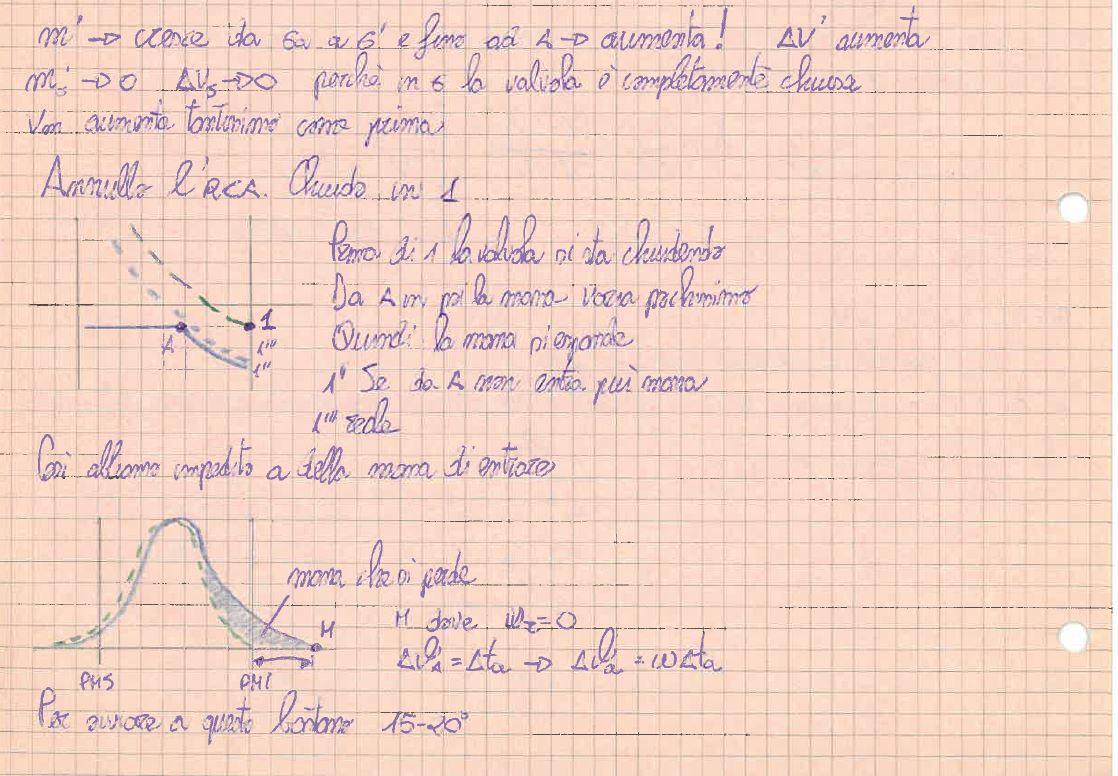 m' → cresce da 6a a 6' e fino ad A → aumenta! ΔV' aumenta
m's → 0 ΔVs → 0 perchè in 6 la valvola è completamente chiusa
aumenta tantissimo come prima
Annullo l'RCA. Chiudo in 1
Prima di 1 la valvola si sta chiudendo
Da A in poi la massa varia pochissimo
A
1
1'''
1''
Quindi la massa si espande
1'' Se da A non entra più massa
1''' reale
Così abbiamo impedito a della massa di entrare
massa che si perde
M
M dove =0
= Δta → = ωΔta
PMS
PMI
Per ovviare a questo bastano 15-20°